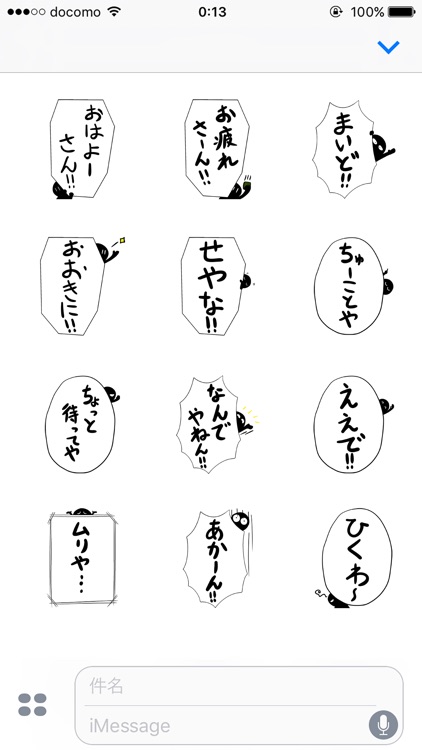 docomo
0:13
100%
おはよー
さん!!
お疲れ
さーん!!
まいど!!
おおきに!!
せやな!!
ちゅーことや
ちょっと
待ってや
なんで
やねん!!
ええで!!
ムリや…
あかーん!!
ひくわ〜
件名
iMessage